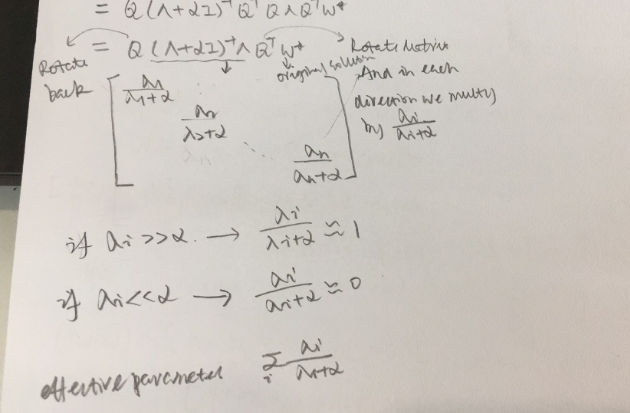 = Q (Λ+αI)⁻¹ Qᵀ Q Λ Qᵀ w*
= Q (Λ+αI)⁻¹ Λ Qᵀ w*
Rotate back
original solution
Rotate Matrix
And in each
direction we multy
by λi/(λi+α)
[ λ1/(λ1+α)
λ2/(λ2+α)
⋱
λn/(λn+α) ]
if λi >> α → λi/(λi+α) ≈ 1
if λi << α → λi/(λi+α) ≈ 0
effective parameter Σi λi/(λi+α)